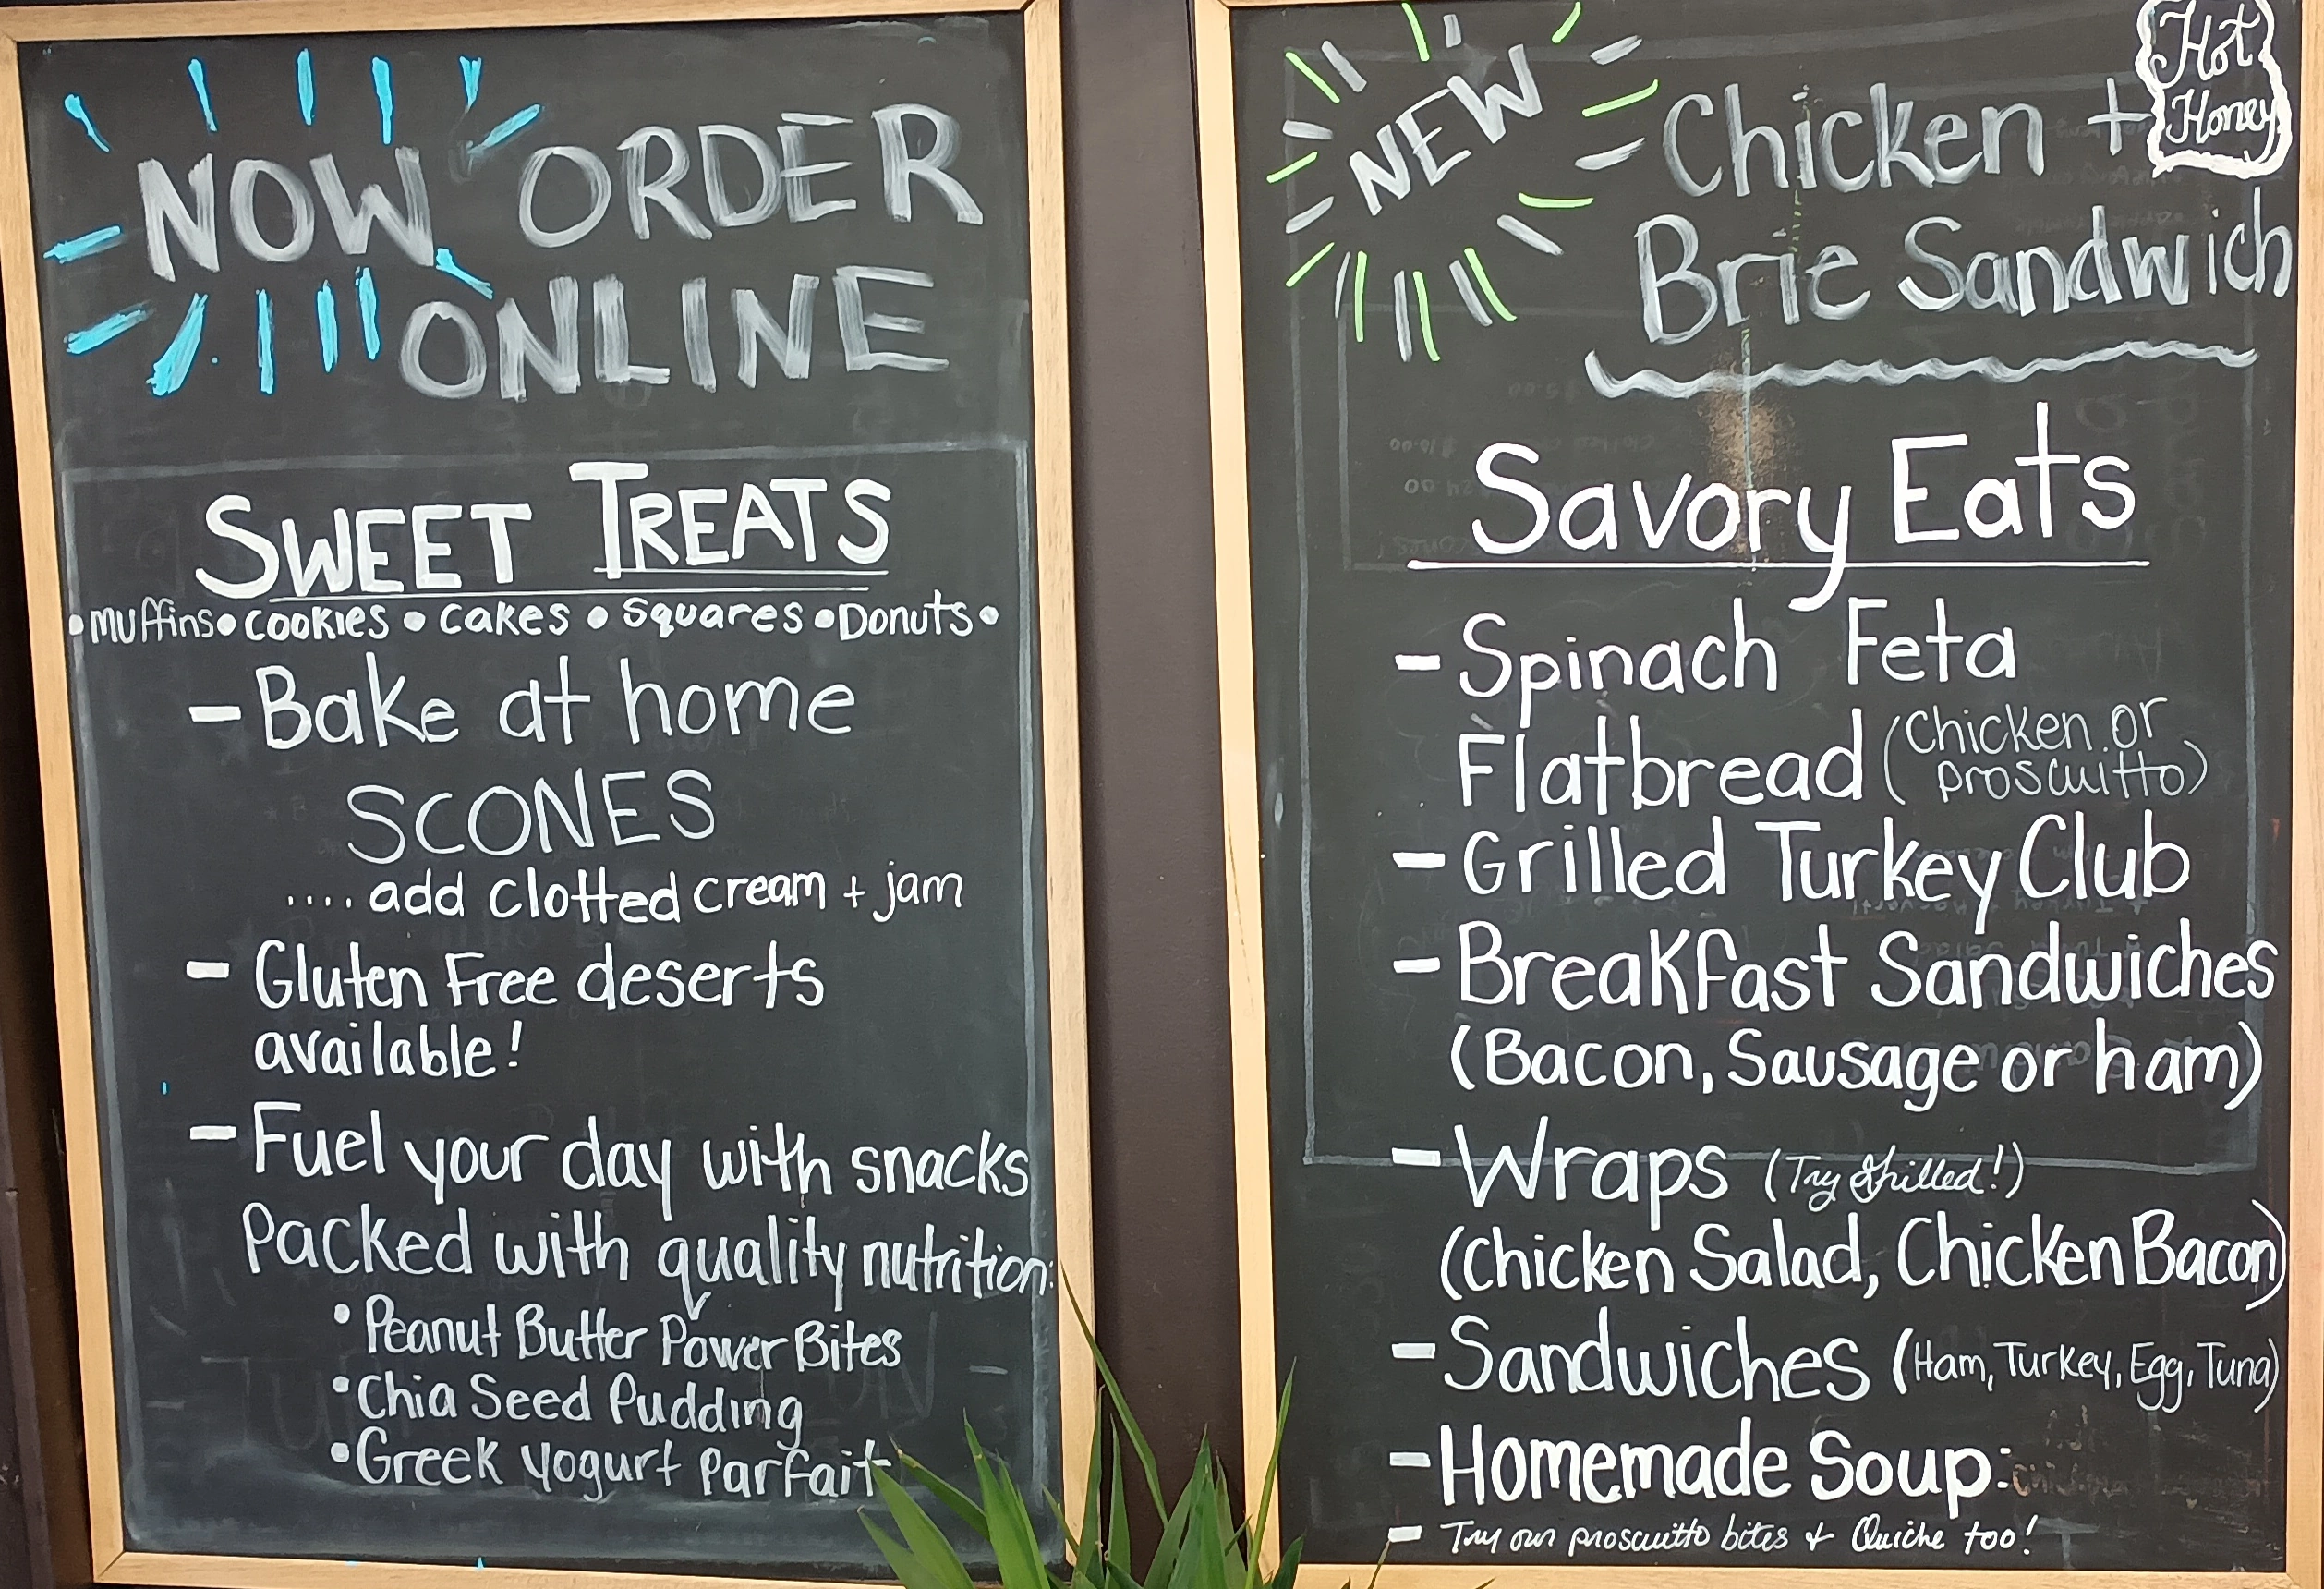 NOW ORDER
ONLINE
SWEET TREATS
•Muffins•cookies•cakes•Squares•Donuts•
- Bake at home
SCONES
.... add clotted cream + jam
- Gluten Free deserts
available!
- Fuel your day with snacks
Packed with quality nutrition:
•Peanut Butter Power Bites
•Chia Seed Pudding
•Greek Yogurt Parfait
NEW
Chicken + Hot Honey
Brie Sandwich
Savory Eats
- Spinach Feta
Flatbread (Chicken or
proscuitto)
- Grilled Turkey Club
- Breakfast Sandwiches
(Bacon, Sausage or ham)
- Wraps (Try Grilled!)
(Chicken Salad, Chicken Bacon)
- Sandwiches (Ham, Turkey, Egg, Tuna)
- Homemade Soup:
- Try our proscuitto bites + Quiche too!